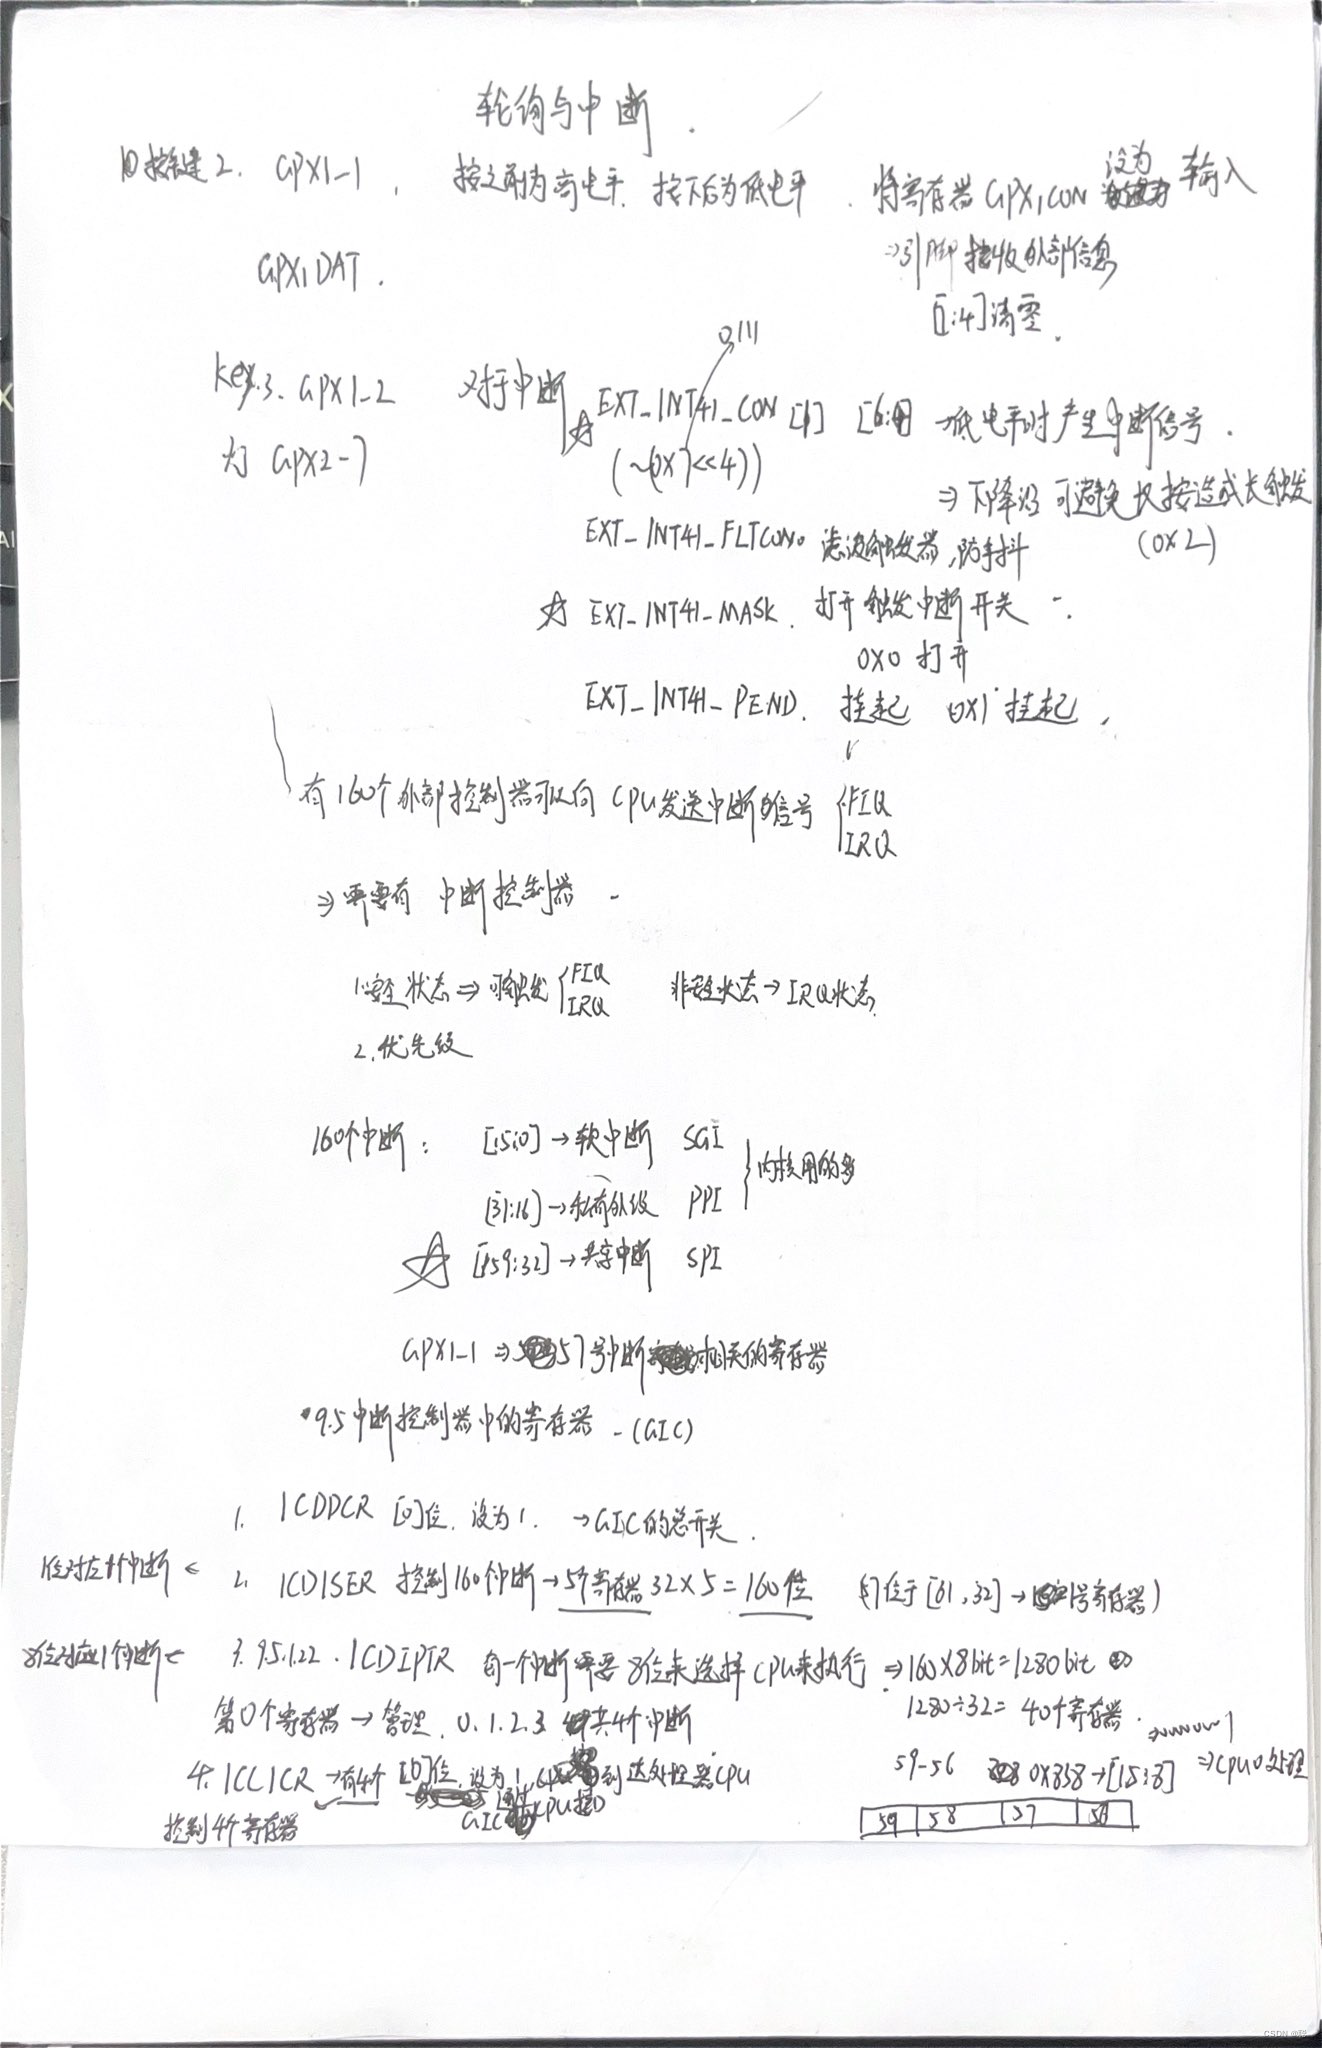 轮询与中断.
按键2. GPX1-1, 按之前为高电平. 按下后为低电平. 将寄存器 GPX1CON 设为 输入
GPX1DAT. ⇒引脚接收外部信息
[7:4]清零.
0111
key.3. GPX1-2 对于中断 ☆ EXT_INT41_CON [1] [6:4] →低电平时产生中断信号.
灯 GPX2-7 (~(0x7<<4))
⇒下降沿 可避免长按造成长触发
EXT_INT41_FLTCON0 滤波触发器,防手抖 (0X2)
☆ EXT_INT41_MASK. 打开触发中断开关
0X0 打开
EXT_INT41_PEND. 挂起 0X1 挂起,
有160个外部控制器可以向 CPU发送中断信号 {FIQ
IRQ
⇒需要有 中断控制器
1.安全状态⇒可触发{FIQ 非安全状态→IRQ状态.
IRQ
2.优先级
160个中断: [15:0]→软中断 SGI
}内核用的多
[31:16]→私有外设 PPI
☆ [159:32]→共享中断 SPI
GPX1-1 ⇒57号中断相关的寄存器
9.5中断控制器中的寄存器-(GIC)
1. ICDDCR [0]位. 设为1. →GIC的总开关.
1位对应1个中断 ← 2. ICDISER 控制160个中断→5个寄存器 32X5=160位 (57位于[61,32]→1号寄存器)
8位对应1个中断← 3. 9.5.1.22. ICDIPTR 有一个中断需要8位来选择CPU来执行 ⇒160X8bit=1280bit
第0个寄存器→管理 0.1.2.3 共4个中断 1280÷32= 40个寄存器.
4. ICCICR →有4个 [0]位.设为1 到达处理器CPU 59-56 0X838→[15:8] ⇒CPU0处理
控制4个寄存器 GIC通过CPU接口 59 58 57 56
CSDN